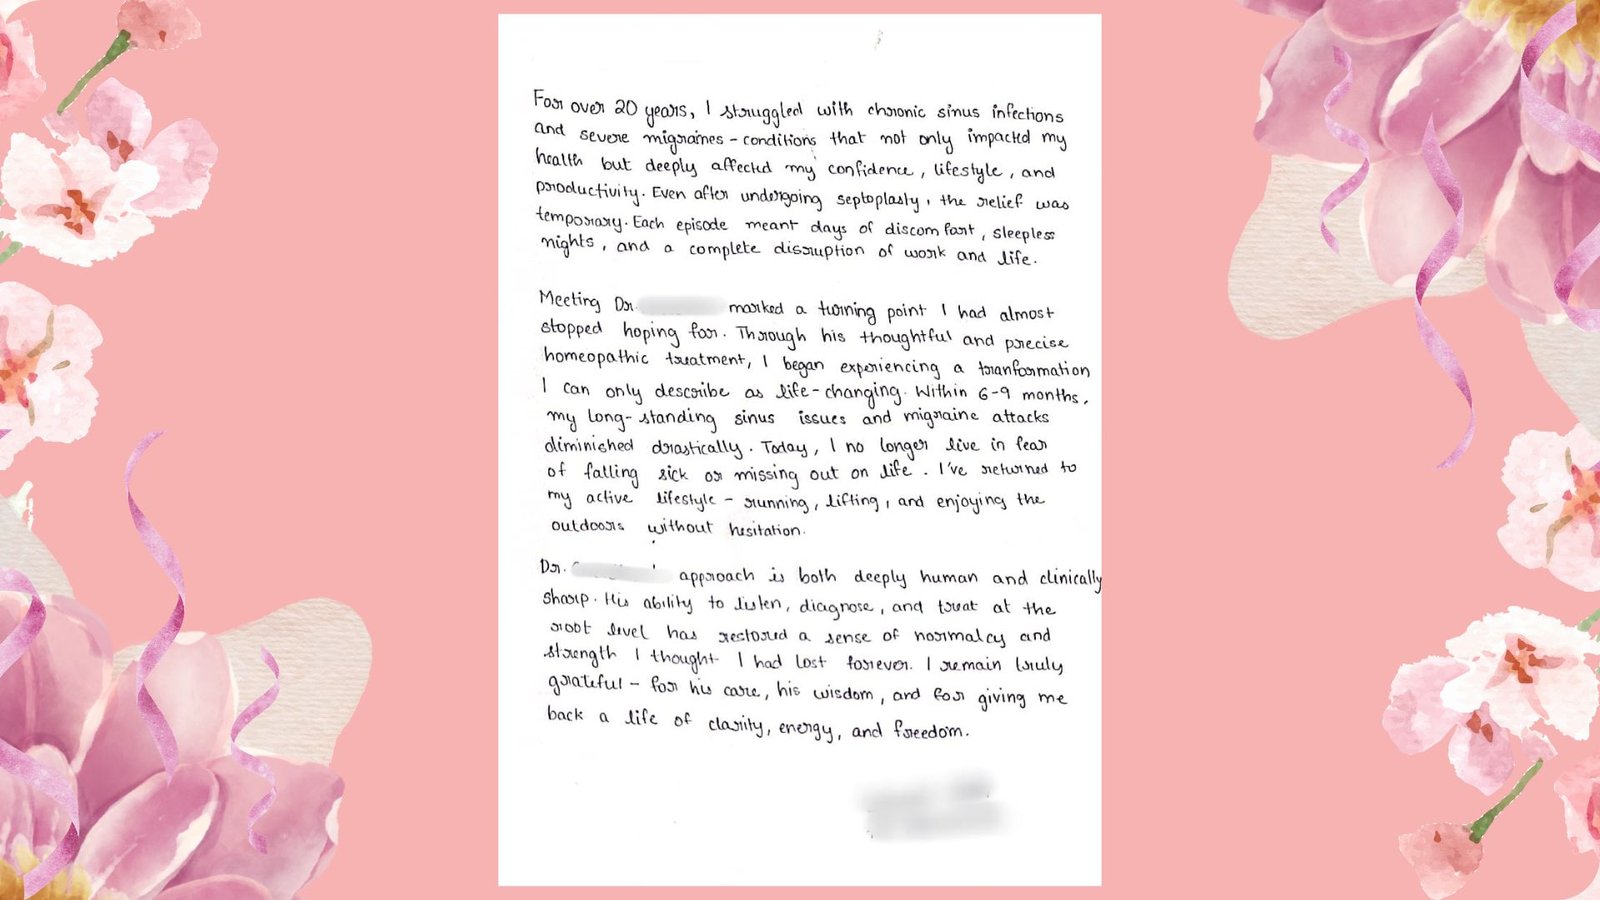 For over 20 years, I struggled with chronic sinus infections
and severe migraines - conditions that not only impacted my
health but deeply affected my confidence, lifestyle, and
productivity. Even after undergoing septoplasty, the relief was
temporary. Each episode meant days of discomfort, sleepless
nights, and a complete disruption of work and life.
Meeting Dr. marked a turning point I had almost
stopped hoping for. Through his thoughtful and precise
homeopathic treatment, I began experiencing a tranformation
I can only describe as life-changing. Within 6-9 months,
my long-standing sinus issues and migraine attacks
diminished drastically. Today, I no longer live in fear
of falling sick or missing out on life. I've returned to
my active lifestyle - running, lifting, and enjoying the
outdoors without hesitation.
Dr. approach is both deeply human and clinically
sharp. His ability to listen, diagnose, and treat at the
root level has restored a sense of normalcy and
strength I thought I had lost forever. I remain truly
grateful - for his care, his wisdom, and for giving me
back a life of clarity, energy, and freedom.